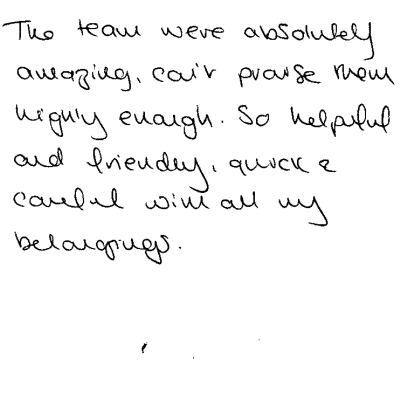 The team were absolutely
amazing, can't praise them
highly enough. So helpful
and friendly, quick &
careful with all my
belongings.